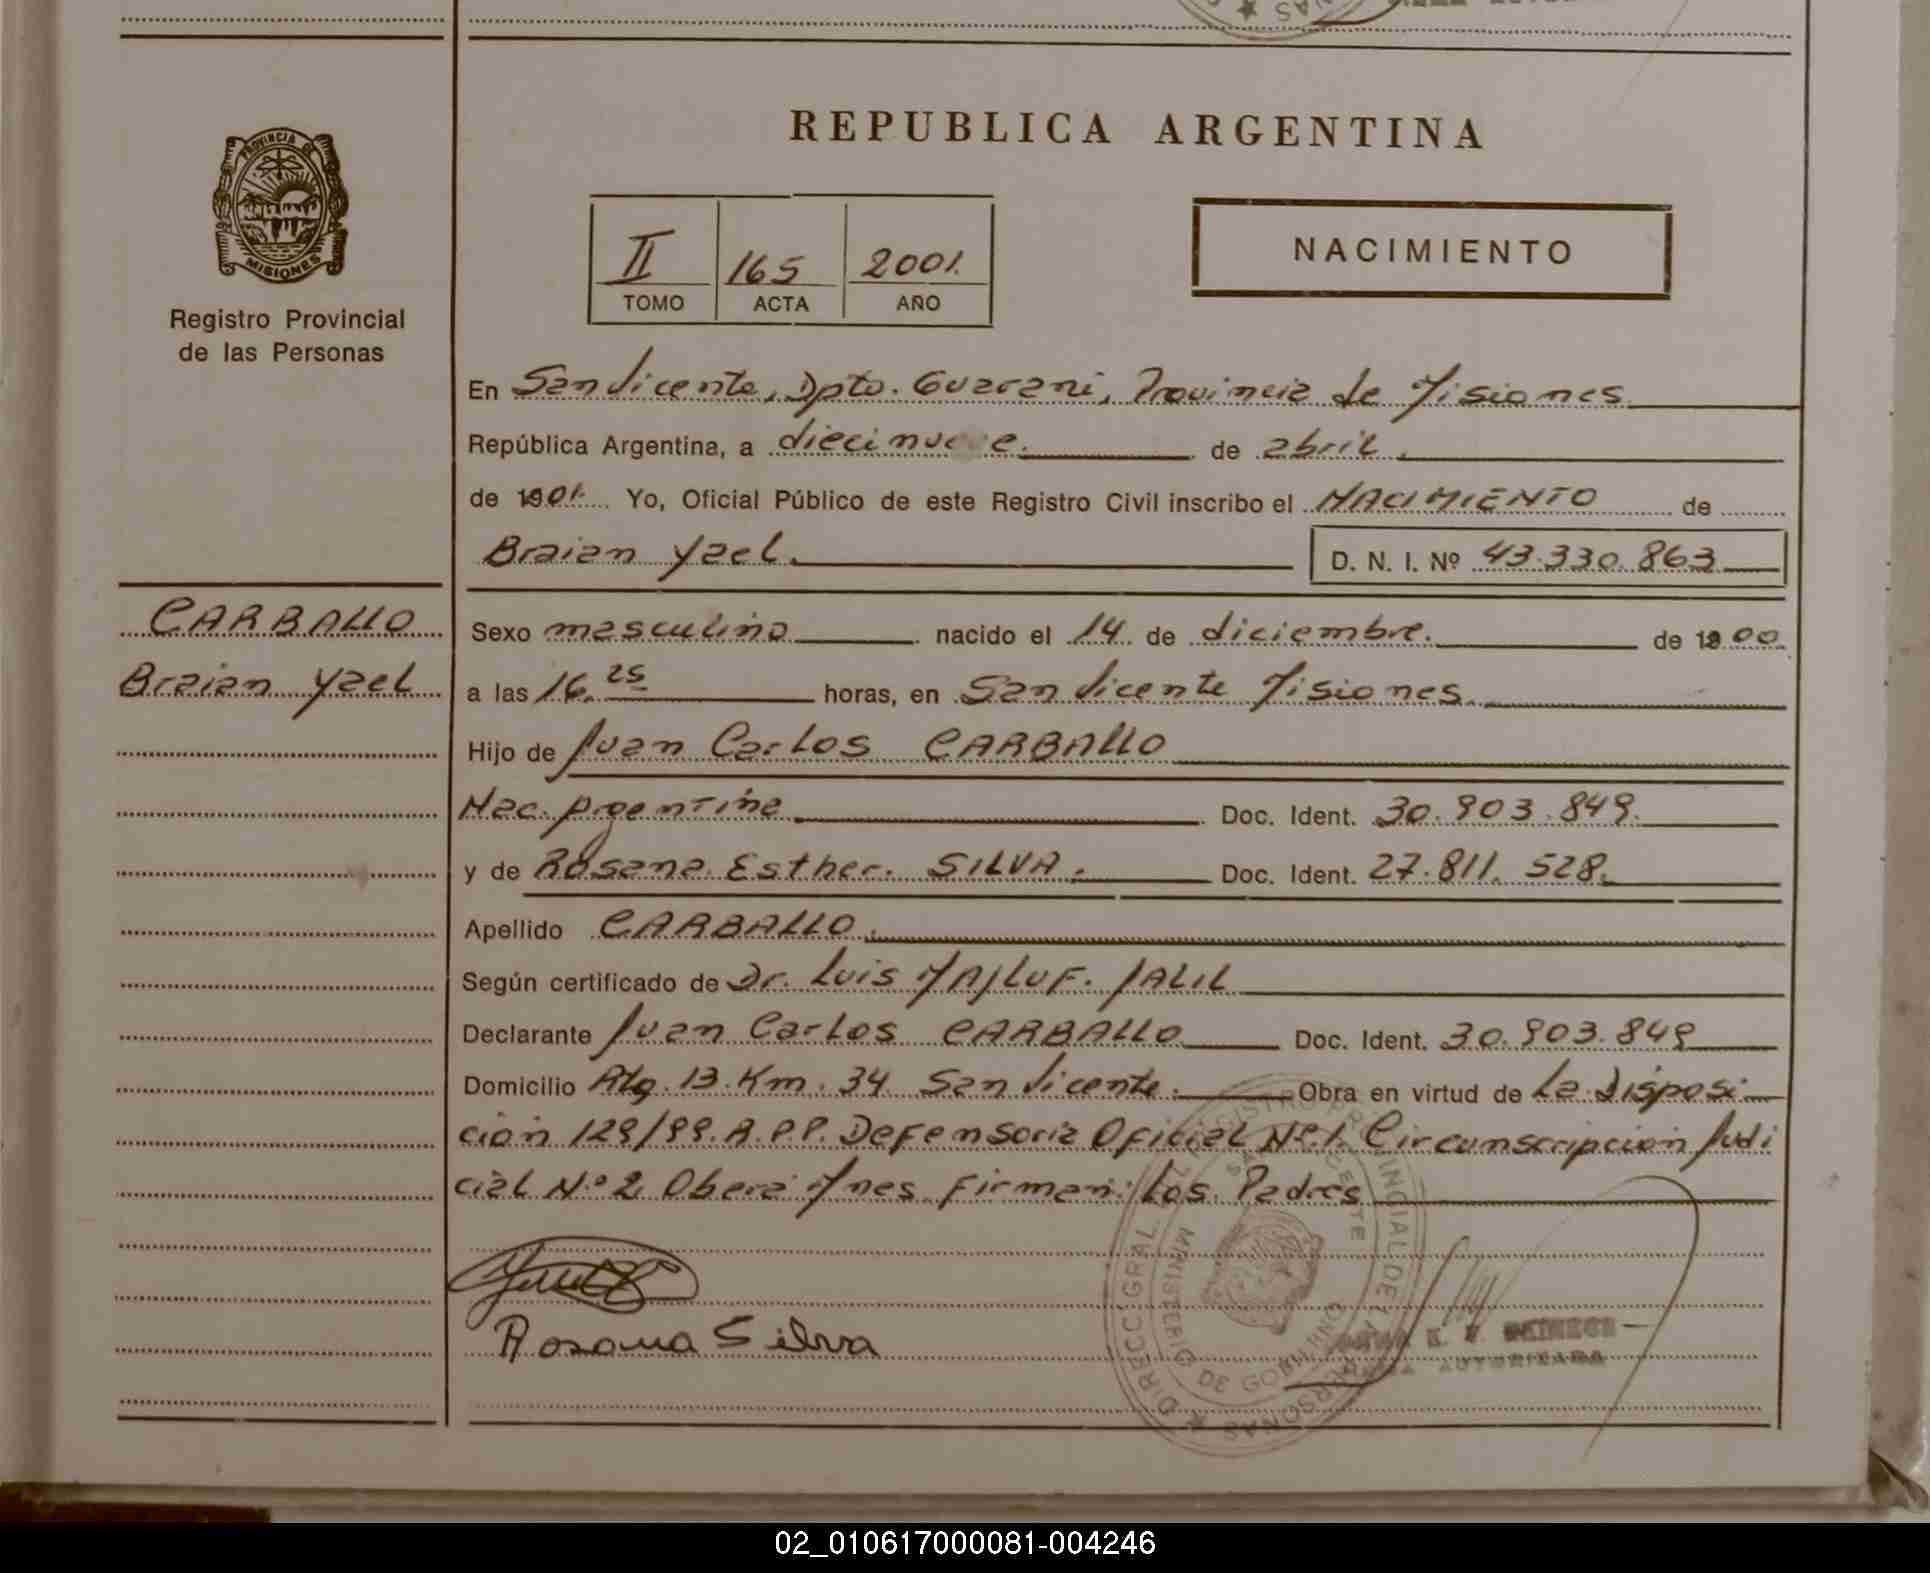 REPUBLICA ARGENTINA
PROVINCIA DE
MISIONES
Registro Provincial
de las Personas
II 165 2001.
TOMO ACTA AÑO
NACIMIENTO
En San Vicente, Dpto. Guarani, Provincia de Misiones
República Argentina, a diecinueve. de abril.
de 1901. Yo, Oficial Público de este Registro Civil inscribo el NACIMIENTO de
Braian Yael. D. N. I. Nº 43.330.863
CARBALLO
Braian Yael
Sexo masculino nacido el 14 de diciembre. de 1900
a las 16.25 horas, en San Vicente Misiones.
Hijo de Juan Carlos CARBALLO
Nac. Argentina Doc. Ident. 30.903.849.
y de Rosana Esther. SILVA. Doc. Ident. 27.811.528.
Apellido CARBALLO.
Según certificado de Dr. Luis MAJLUF. JALIL
Declarante Juan Carlos CARBALLO Doc. Ident. 30.903.849
Domicilio Km. 34 San Vicente. Obra en virtud de La Disposi
ción 129/99. R.P.P. Defensoria Oficial Nº1. Circunscripción Judi
cial N.º 2 Obera Mnes. Firman: Los Padres
Rosana Silva
DIRECC. GRAL. REGISTRO PROVINCIAL DE LAS PERSONAS
MINISTERIO DE GOBIERNO
SAN VICENTE
FIRMA AUTORIZADA
02_010617000081-004246